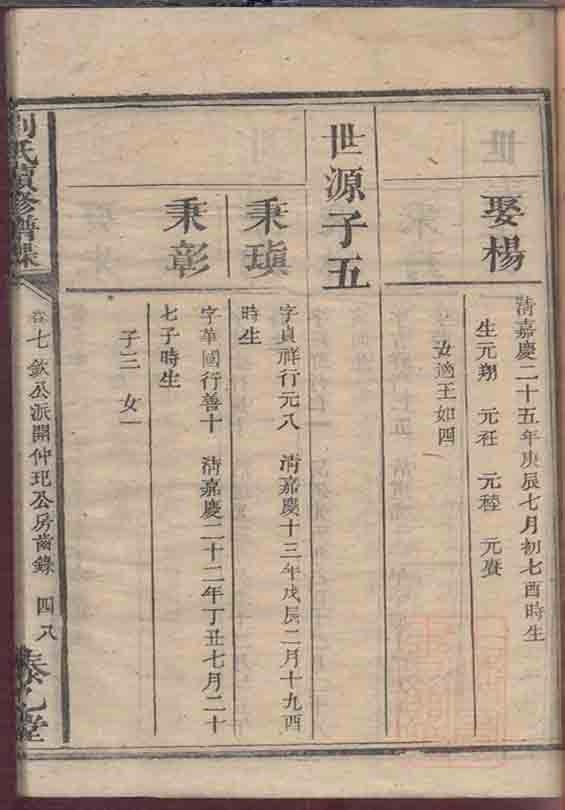 娶楊
清嘉慶二十五年庚辰七月初七酉時生
生元翔 元秹 元稑 元賡
女適王如四
世源子五
秉瑱
字貞祥行元八 清嘉慶十三年戊辰二月十九酉
時生
秉彰
字華國行善十 清嘉慶二十二年丁丑七月二十
七子時生
子三 女一
劉氏續修譜牒
卷七 欽公派開仲玘公房齒錄 四八
泰乙堂